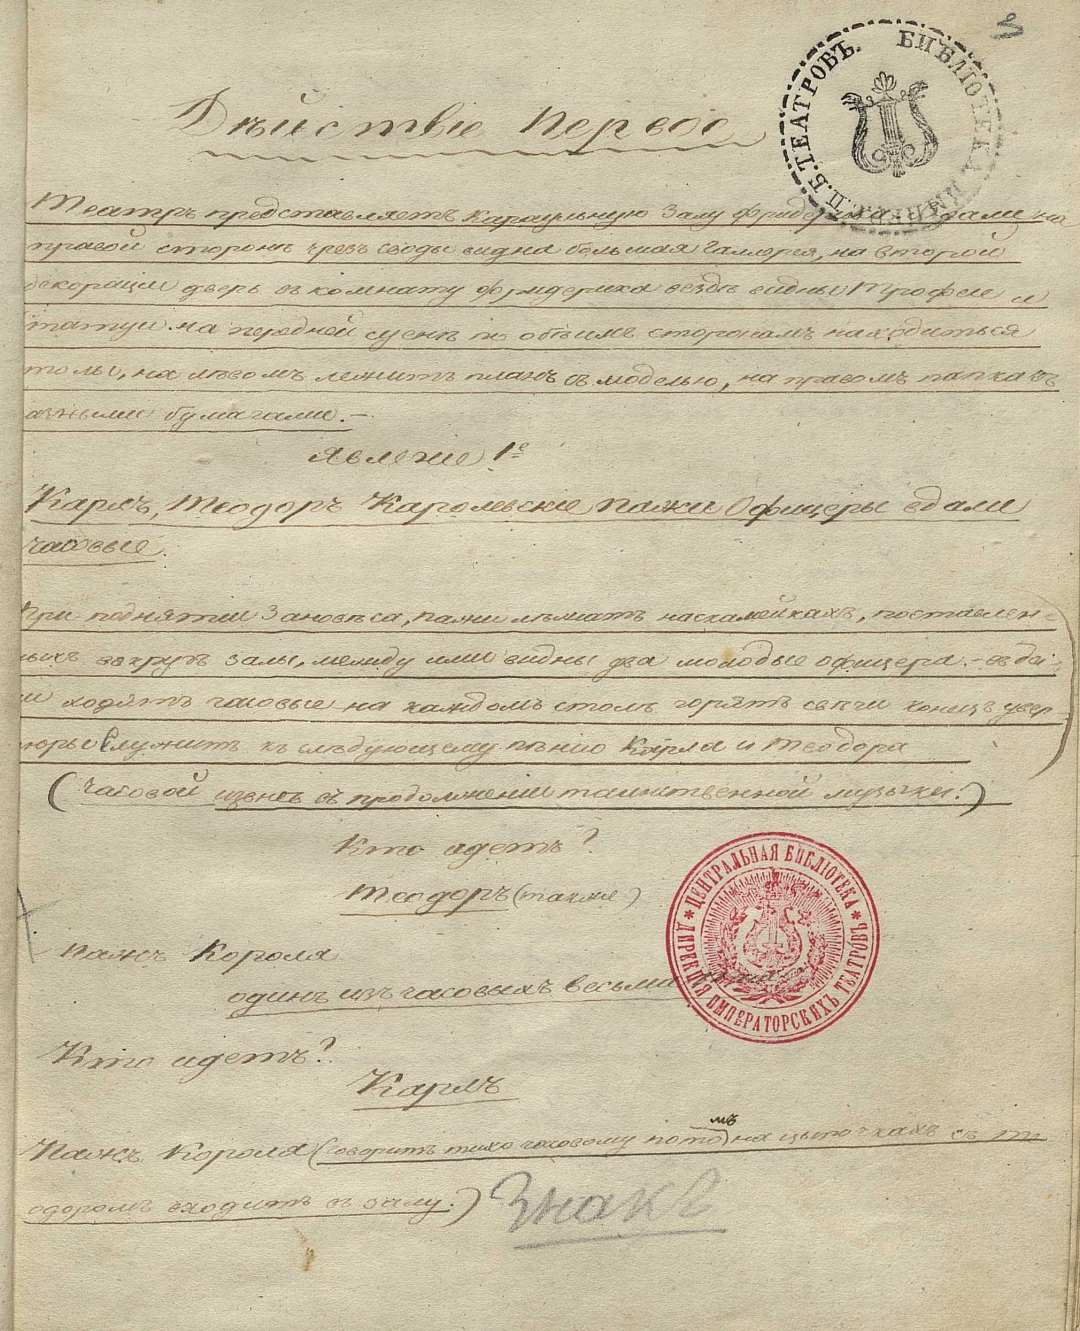 БИБЛІОТЕКА ИМПЕР. П. Б. ТЕАТРОВЪ.
Дѣйствіе первое
Театръ представляетъ Караульную залу Фридериха вдали на
правой сторонѣ чрезъ своды видна большая галлерея, на второй
декораціи дверь въ комнату Фридериха вездѣ видны трофеи и
статуи на передней сценѣ по обѣимъ сторонамъ находиться
столы, на лѣвомъ лежитъ планъ съ моделью, на правомъ папка съ
разными бумагами. –
Явленіе 1е
Карлъ, Теодоръ Королевскіе пажи Офицеры вдали
часовые.
При поднятіи Зановѣса, пажи лѣжатъ наскамейкахъ, поставлен-
ныхъ вокругъ залы, между ими видны два молодые офицера. – вда-
ли ходятъ часовые на каждомъ столѣ горятъ свѣчи конецъ увер-
тюры Служитъ къ слѣдующему пѣнію Карла и Теодора
(Часовой извнѣ въ продолженіи таинственной музыки.)
Кто идетъ?
Теодоръ (также)
Пажъ Короля
одинъ изъ часовыхъ весьма
Кто идетъ?
Карлъ
Пажъ Короля (говоритъ тихо часовому потомъ на цыпочкахъ съ Те
одоромъ входитъ въ залу.)
Знакъ
ЦЕНТРАЛЬНАЯ БИБЛІОТЕКА * ДИРЕКЦІЯ ИМПЕРАТОРСКИХЪ ТЕАТРОВЪ *